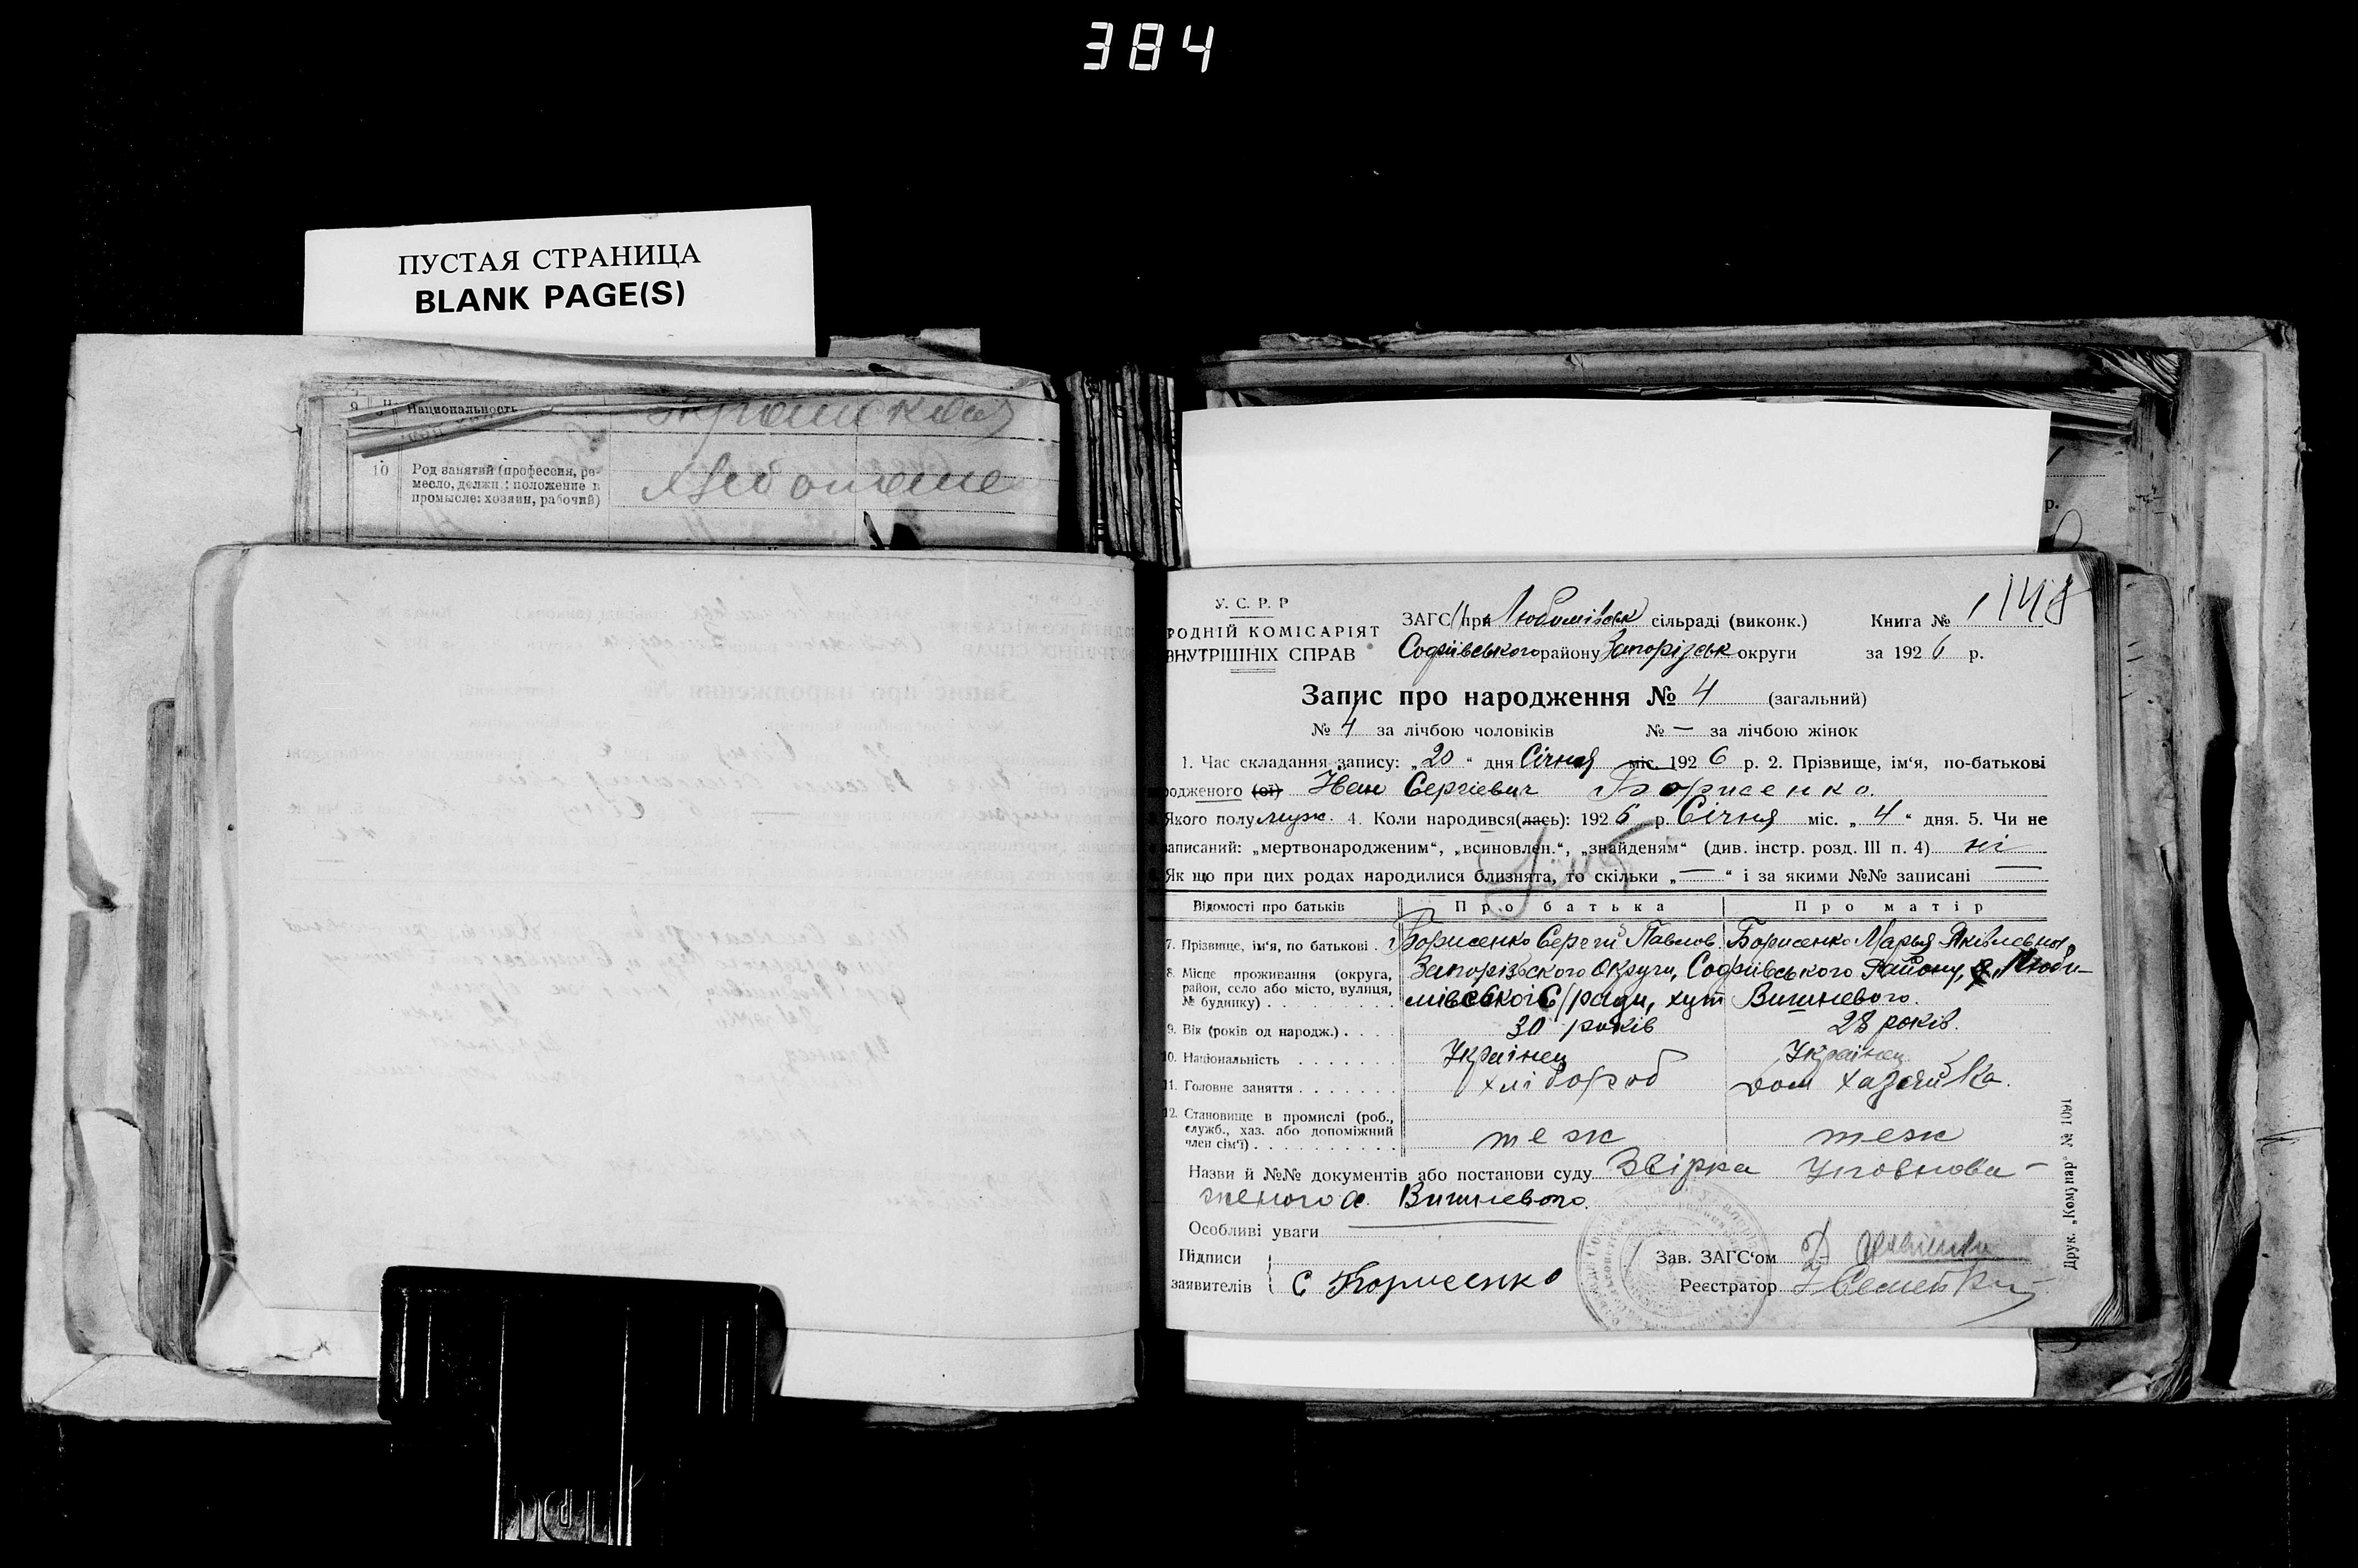 384
ПУСТАЯ СТРАНИЦА
BLANK PAGE(S)
9 Национальность
10 Род занятий (профессия, ре-
месло, должн.: положение в
промысле: хозяин, рабочий)
У. С. Р. Р
РОДНІЙ КОМІСАРІЯТ
ВНУТРІШНІХ СПРАВ
ЗАГС при Любимівськ сільраді (виконк.) Книга № 1 148
Софіївського району Запорізськ округи за 1926 р.
Запис про народження № 4 (загальний)
№ 4 за лічбою чоловіків № — за лічбою жінок
1. Час складання запису: „20" дня Січня міс. 1926 р. 2. Прізвище, ім'я, по-батькові
родженого (ої) Іван Сергієвич Борисенко.
Якого полу муж. 4. Коли народився(лась): 1926 р. Січня міс. „4" дня. 5. Чи не
записаний: „мертвонародженим", „всиновлен.", „знайденям" (див. інстр. розд. III п. 4) ні
Як що при цих родах народилися близнята, то скільки „—" і за якими №№ записані —
Відомості про батьків Про батька Про матір
7. Прізвище, ім'я, по батькові . Борисенко Сергій Павлов. Борисенко Марья Яківлевна
8. Місце проживання (округа,
район, село або місто, вулиця,
№ будинку) . . . . . . . . .
Запорізського Округи, Софіївського Району, Люби-
мівської С/ради, хут Вишневого.
9. Вік (років од народж.) . . . . 30 років 28 років.
10. Національність . . . . . . . Українец Українец
11. Головне заняття . . . . . . . хлібороб дом хазяйка.
12. Становище в промислі (роб.,
служб., хаз. або допоміжний
член сім'ї) . . . . . . . . . . теж теж
Назви й №№ документів або постанови суду Звірка Уповнова-
женого х. Вишневого.
Особливі уваги
Підписи
заявителів С Борисенко
Зав. ЗАГС'ом
Реєстратор
Друк. „Комунар" № 1091